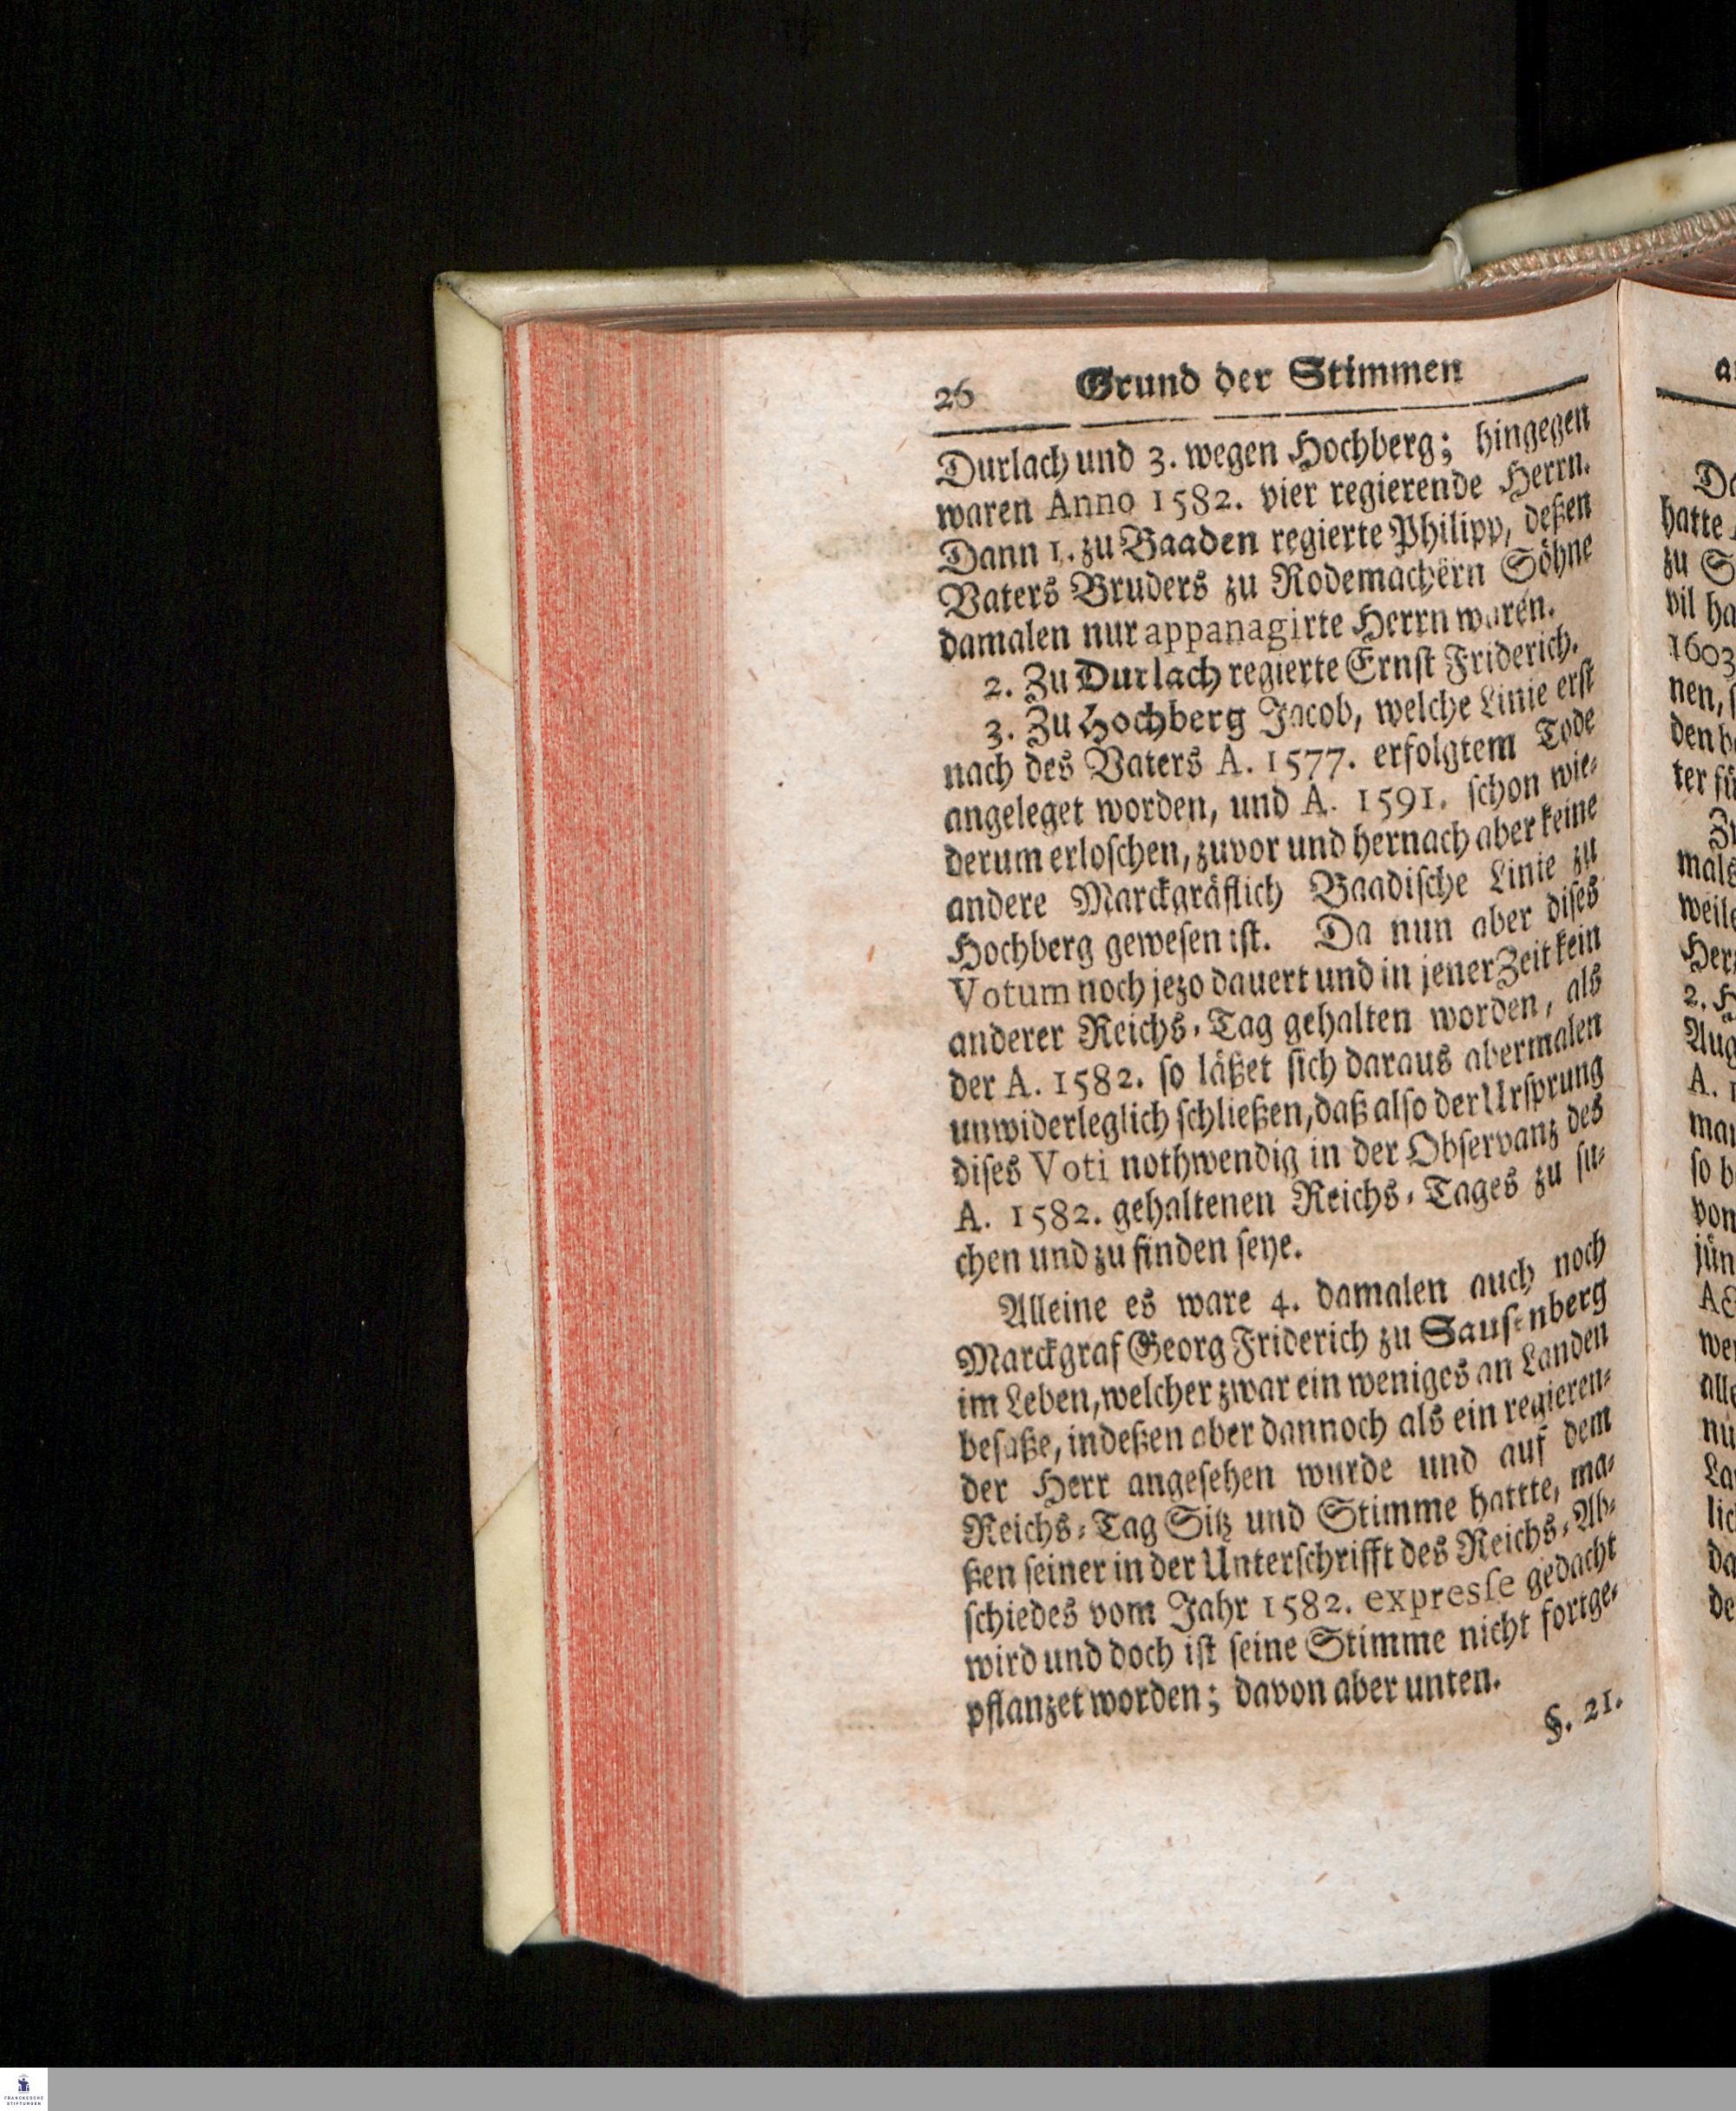 26 Grund der Stimmen
Durlach und 3. wegen Hochberg; hingegen
waren Anno 1582. vier regierende Herrn.
Dann 1. zu Baaden regierte Philipp, deßen
Vaters Bruders zu Rodemachern Söhne
damalen nur appanagirte Herrn waren.
2. Zu Durlach regierte Ernst Friderich.
3. Zu Hochberg Jacob, welche Linie erst
nach des Vaters A. 1577. erfolgtem Tode
angeleget worden, und A. 1591. schon wie⸗
derum erloschen, zuvor und hernach aber keine
andere Marckgräflich Baadische Linie zu
Hochberg gewesen ist. Da nun aber dises
Votum noch jezo dauert und in jener Zeit kein
anderer Reichs⸗Tag gehalten worden, als
der A. 1582. so läßet sich daraus abermalen
unwiderleglich schließen, daß also der Ursprung
dises Voti nothwendig in der Observanz des
A. 1582. gehaltenen Reichs⸗Tages zu su⸗
chen und zu finden seye.
Alleine es ware 4. damalen auch noch
Marckgraf Georg Friderich zu Sausenberg
im Leben, welcher zwar ein weniges an Landen
besaße, indeßen aber dannoch als ein regieren⸗
der Herr angesehen wurde und auf dem
Reichs⸗Tag Sitz und Stimme hattte, ma⸗
ßen seiner in der Unterschrifft des Reichs⸗Ab⸗
schiedes vom Jahr 1582. expresse gedacht
wird und doch ist seine Stimme nicht fortge⸗
pflanzet worden; davon aber unten.
§. 21.
hatte
zu S
vil ha
1603
nen,
den
mals
2. H
A. 1
so b
von
FRANCKESCHE
STIFTUNGEN